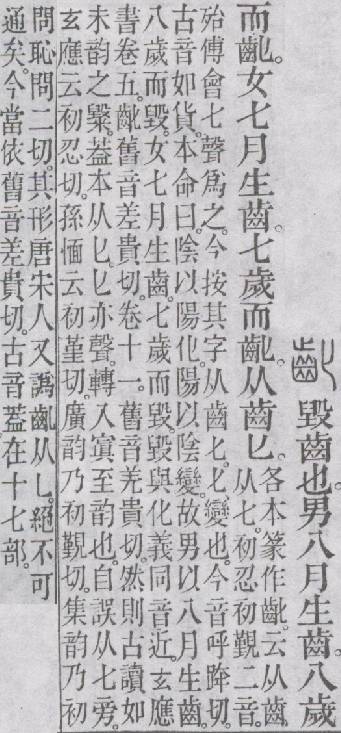 毀齒也。男八月生齒。八歲
而齔。女七月生齒。七歲而齔。从齒匕。
各本篆作齔。云从齒
从七。初忍初覲二音。
殆傅會七聲爲之。今按其字从齒匕。匕變也。今音呼跨切。
古音如貨。本命曰。陰以陽化。陽以陰變。故男以八月生齒。
八歲而毀。女七月生齒。七歲而毀。毀與化義同音近。玄應
書卷五。齔舊音差貴切。卷十一。舊音羌貴切。然則古讀如
未韵之槩。葢本从匕。匕亦聲。轉入寘至韵也。自誤从七旁。
玄應云初忍切。孫愐云初堇切。廣韵乃初覲切。集韵乃初
問恥問二切。其形唐宋人又譌齔从乚。絕不可
通矣。今當依舊音差貴切。古音葢在十七部。